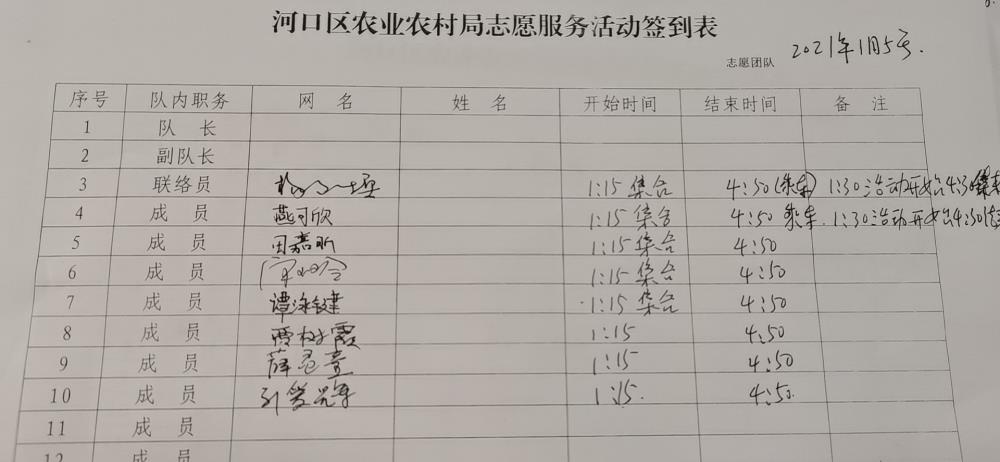 河口区农业农村局志愿服务活动签到表
志愿团队 2021年1月5号.
序号 队内职务 网 名 姓 名 开始时间 结束时间 备 注
1 队 长
2 副队长
3 联络员 1:15 集合 4:50(乘车) 1:30活动开始4:30
4 成 员 燕可欣 1:15 集合 4:50 乘车. 1:30活动开始4:30
5 成 员 田嘉昕 1:15 集合 4:50
6 成 员 1:15 集合 4:50
7 成 员 谭泳健 1:15 集合 4:50
8 成 员 贾树霞 1:15 4:50
9 成 员 薛 1:15 4:50
10 成 员 1:15. 4:50.
11 成 员
12 成 员